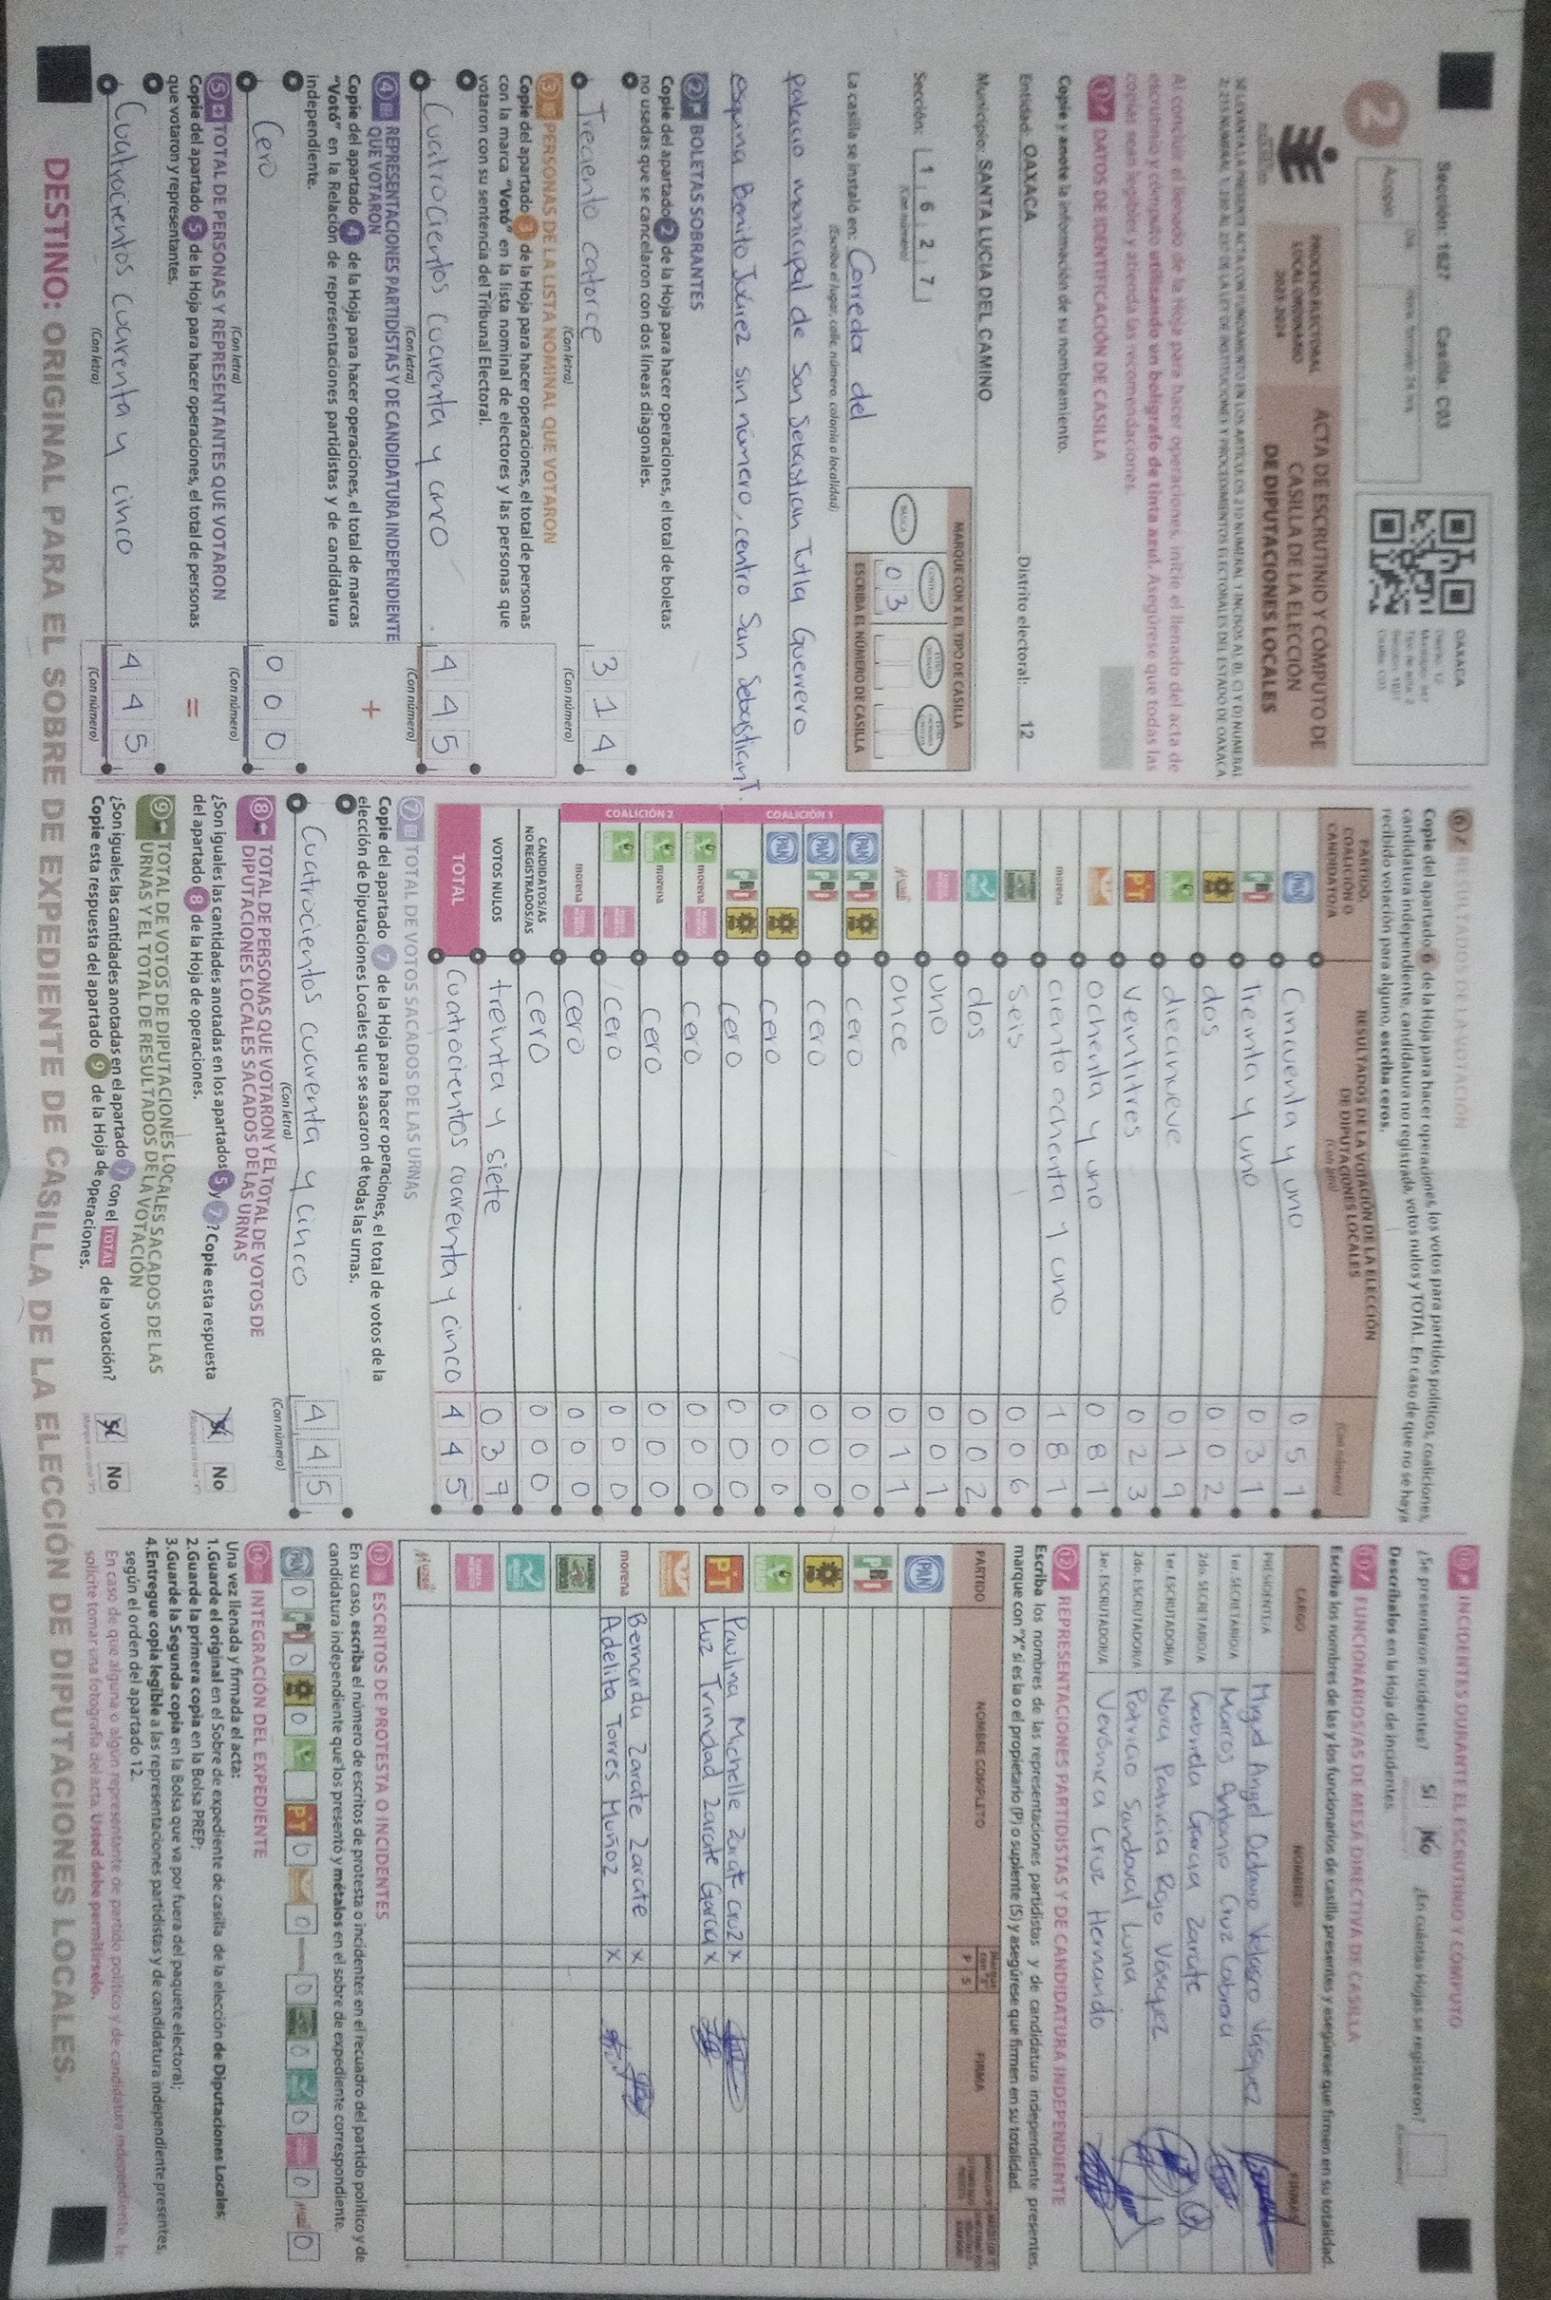 Sección: 1627 Casilla: C03
2
Acopio
OAXACA
PROCESO ELECTORAL
LOCAL ORDINARIO
2023-2024
ACTA DE ESCRUTINIO Y CÓMPUTO DE
CASILLA DE LA ELECCIÓN
DE DIPUTACIONES LOCALES
Al concluir el llenado de la Hoja para hacer operaciones, inicie el llenado del acta de
escrutinio y cómputo utilizando un bolígrafo de tinta azul. Asegúrese que todas las
copias sean legibles y atienda las recomendaciones.
1 DATOS DE IDENTIFICACIÓN DE CASILLA
Copie y anote la información de su nombramiento.
Entidad: OAXACA Distrito electoral: 12
Municipio: SANTA LUCIA DEL CAMINO
Sección: 1 6 2 7
(Con número)
MARQUE CON X EL TIPO DE CASILLA
BÁSICA
0 3
ESCRIBA EL NÚMERO DE CASILLA
La casilla se instaló en: Corredor del
(Escriba el lugar, calle, número, colonia o localidad)
palacio municipal de San Sebastian Tutla Guerrero
esquina Benito Juárez sin número, centro San Sebastian T.
2 BOLETAS SOBRANTES
Copie del apartado 2 de la Hoja para hacer operaciones, el total de boletas
no usadas que se cancelaron con dos líneas diagonales.
Treciento catorce 3 1 4
(Con letra) (Con número)
3 PERSONAS DE LA LISTA NOMINAL QUE VOTARON
Copie del apartado 3 de la Hoja para hacer operaciones, el total de personas
con la marca "Votó" en la lista nominal de electores y las personas que
votaron con su sentencia del Tribunal Electoral.
Cuatrocientos cuarenta y cinco 4 4 5
(Con letra) (Con número)
4 REPRESENTACIONES PARTIDISTAS Y DE CANDIDATURA INDEPENDIENTE
QUE VOTARON
Copie del apartado 4 de la Hoja para hacer operaciones, el total de marcas
"Votó" en la Relación de representaciones partidistas y de candidatura
independiente.
+
Cero 0 0 0
(Con letra) (Con número)
5 TOTAL DE PERSONAS Y REPRESENTANTES QUE VOTARON
Copie del apartado 5 de la Hoja para hacer operaciones, el total de personas
que votaron y representantes.
=
Cuatrocientos cuarenta y cinco 4 4 5
(Con letra) (Con número)
6 RESULTADOS DE LA VOTACIÓN
Copie del apartado 6 de la Hoja para hacer operaciones, los votos para partidos políticos, coaliciones,
candidatura independiente, candidatura no registrada, votos nulos y TOTAL. En caso de que no se haya
recibido votación para alguno, escriba ceros.
PARTIDO,
COALICIÓN O
CANDIDATO/A
RESULTADOS DE LA VOTACIÓN DE LA ELECCIÓN
DE DIPUTACIONES LOCALES
(Con letra) (Con número)
PAN Cincuenta y uno 0 5 1
PRI Treinta y uno 0 3 1
dos 0 0 2
diecinueve 0 1 9
PT Veintitres 0 2 3
ochenta y uno 0 8 1
morena ciento ochenta y uno 1 8 1
Seis 0 0 6
dos 0 0 2
uno 0 0 1
once 0 1 1
COALICIÓN 1
PAN PRI cero 0 0 0
PAN PRI Cero 0 0 0
PAN cero 0 0 0
PRI cero 0 0 0
COALICIÓN 2
morena cero 0 0 0
morena cero 0 0 0
cero 0 0 0
morena cero 0 0 0
CANDIDATOS/AS
NO REGISTRADOS/AS cero 0 0 0
VOTOS NULOS treinta y siete 0 3 7
TOTAL Cuatrocientos cuarenta y cinco 4 4 5
7 TOTAL DE VOTOS SACADOS DE LAS URNAS
Copie del apartado 7 de la Hoja para hacer operaciones, el total de votos de la
elección de Diputaciones Locales que se sacaron de todas las urnas.
Cuatrocientos cuarenta y cinco 4 4 5
(Con letra) (Con número)
8 TOTAL DE PERSONAS QUE VOTARON Y EL TOTAL DE VOTOS DE
DIPUTACIONES LOCALES SACADOS DE LAS URNAS
¿Son iguales las cantidades anotadas en los apartados 5 y 7? Copie esta respuesta
del apartado 8 de la Hoja de operaciones.
Sí No
9 TOTAL DE VOTOS DE DIPUTACIONES LOCALES SACADOS DE LAS
URNAS Y EL TOTAL DE RESULTADOS DE LA VOTACIÓN
¿Son iguales las cantidades anotadas en el apartado 7 con el TOTAL de la votación?
Copie esta respuesta del apartado 9 de la Hoja de operaciones.
Sí No
10 INCIDENTES DURANTE EL ESCRUTINIO Y CÓMPUTO
¿Se presentaron incidentes? Sí No ¿En cuántas Hojas se registraron?
Descríbalos en la Hoja de incidentes.
11 FUNCIONARIOS/AS DE MESA DIRECTIVA DE CASILLA
Escriba los nombres de las y los funcionarios de casilla presentes y asegúrese que firmen en su totalidad.
CARGO NOMBRES FIRMAS
PRESIDENTE/A Miguel Angel Octavio Velasco Vasquez
1er. SECRETARIO/A Marcos Antonio Cruz Cabrera
2do. SECRETARIO/A Gabriela Garcia Zarate
1er. ESCRUTADOR/A Nora Patricia Rojo Vasquez
2do. ESCRUTADOR/A Patricio Sandoval Luna
3er. ESCRUTADOR/A Verónica Cruz Hernando
12 REPRESENTACIONES PARTIDISTAS Y DE CANDIDATURA INDEPENDIENTE
Escriba los nombres de las representaciones partidistas y de candidatura independiente presentes,
marque con "X" si es la o el propietario (P) o suplente (S) y asegúrese que firmen en su totalidad.
PARTIDO NOMBRE COMPLETO P S FIRMA
PAN
PRI
PT Paulina Michelle Zarate Cruz x
Luz Trinidad Zarate Garcia x
morena Bernarda Zarate Zarate x
Adelita Torres Muñoz x
13 ESCRITOS DE PROTESTA O INCIDENTES
En su caso, escriba el número de escritos de protesta o incidentes en el recuadro del partido político y de
candidatura independiente que los presentó y métalos en el sobre de expediente de casilla correspondiente.
PAN 0 PRI 0 0 PT 0 0 0 0 0 0 0
14 INTEGRACIÓN DEL EXPEDIENTE
Una vez llenada y firmada el acta:
1.Guarde el original en el Sobre de expediente de casilla de la elección de Diputaciones Locales;
2.Guarde la primera copia en la Bolsa PREP;
3.Guarde la Segunda copia en la Bolsa que va por fuera del paquete electoral;
4.Entregue copia legible a las representaciones partidistas y de candidatura independiente presentes,
según el orden del apartado 12.
En caso de que alguna o algún representante de partido político y de candidatura independiente, le
solicite tomar una fotografía del acta, Usted debe permitírselo.
DESTINO: ORIGINAL PARA EL SOBRE DE EXPEDIENTE DE CASILLA DE LA ELECCIÓN DE DIPUTACIONES LOCALES.